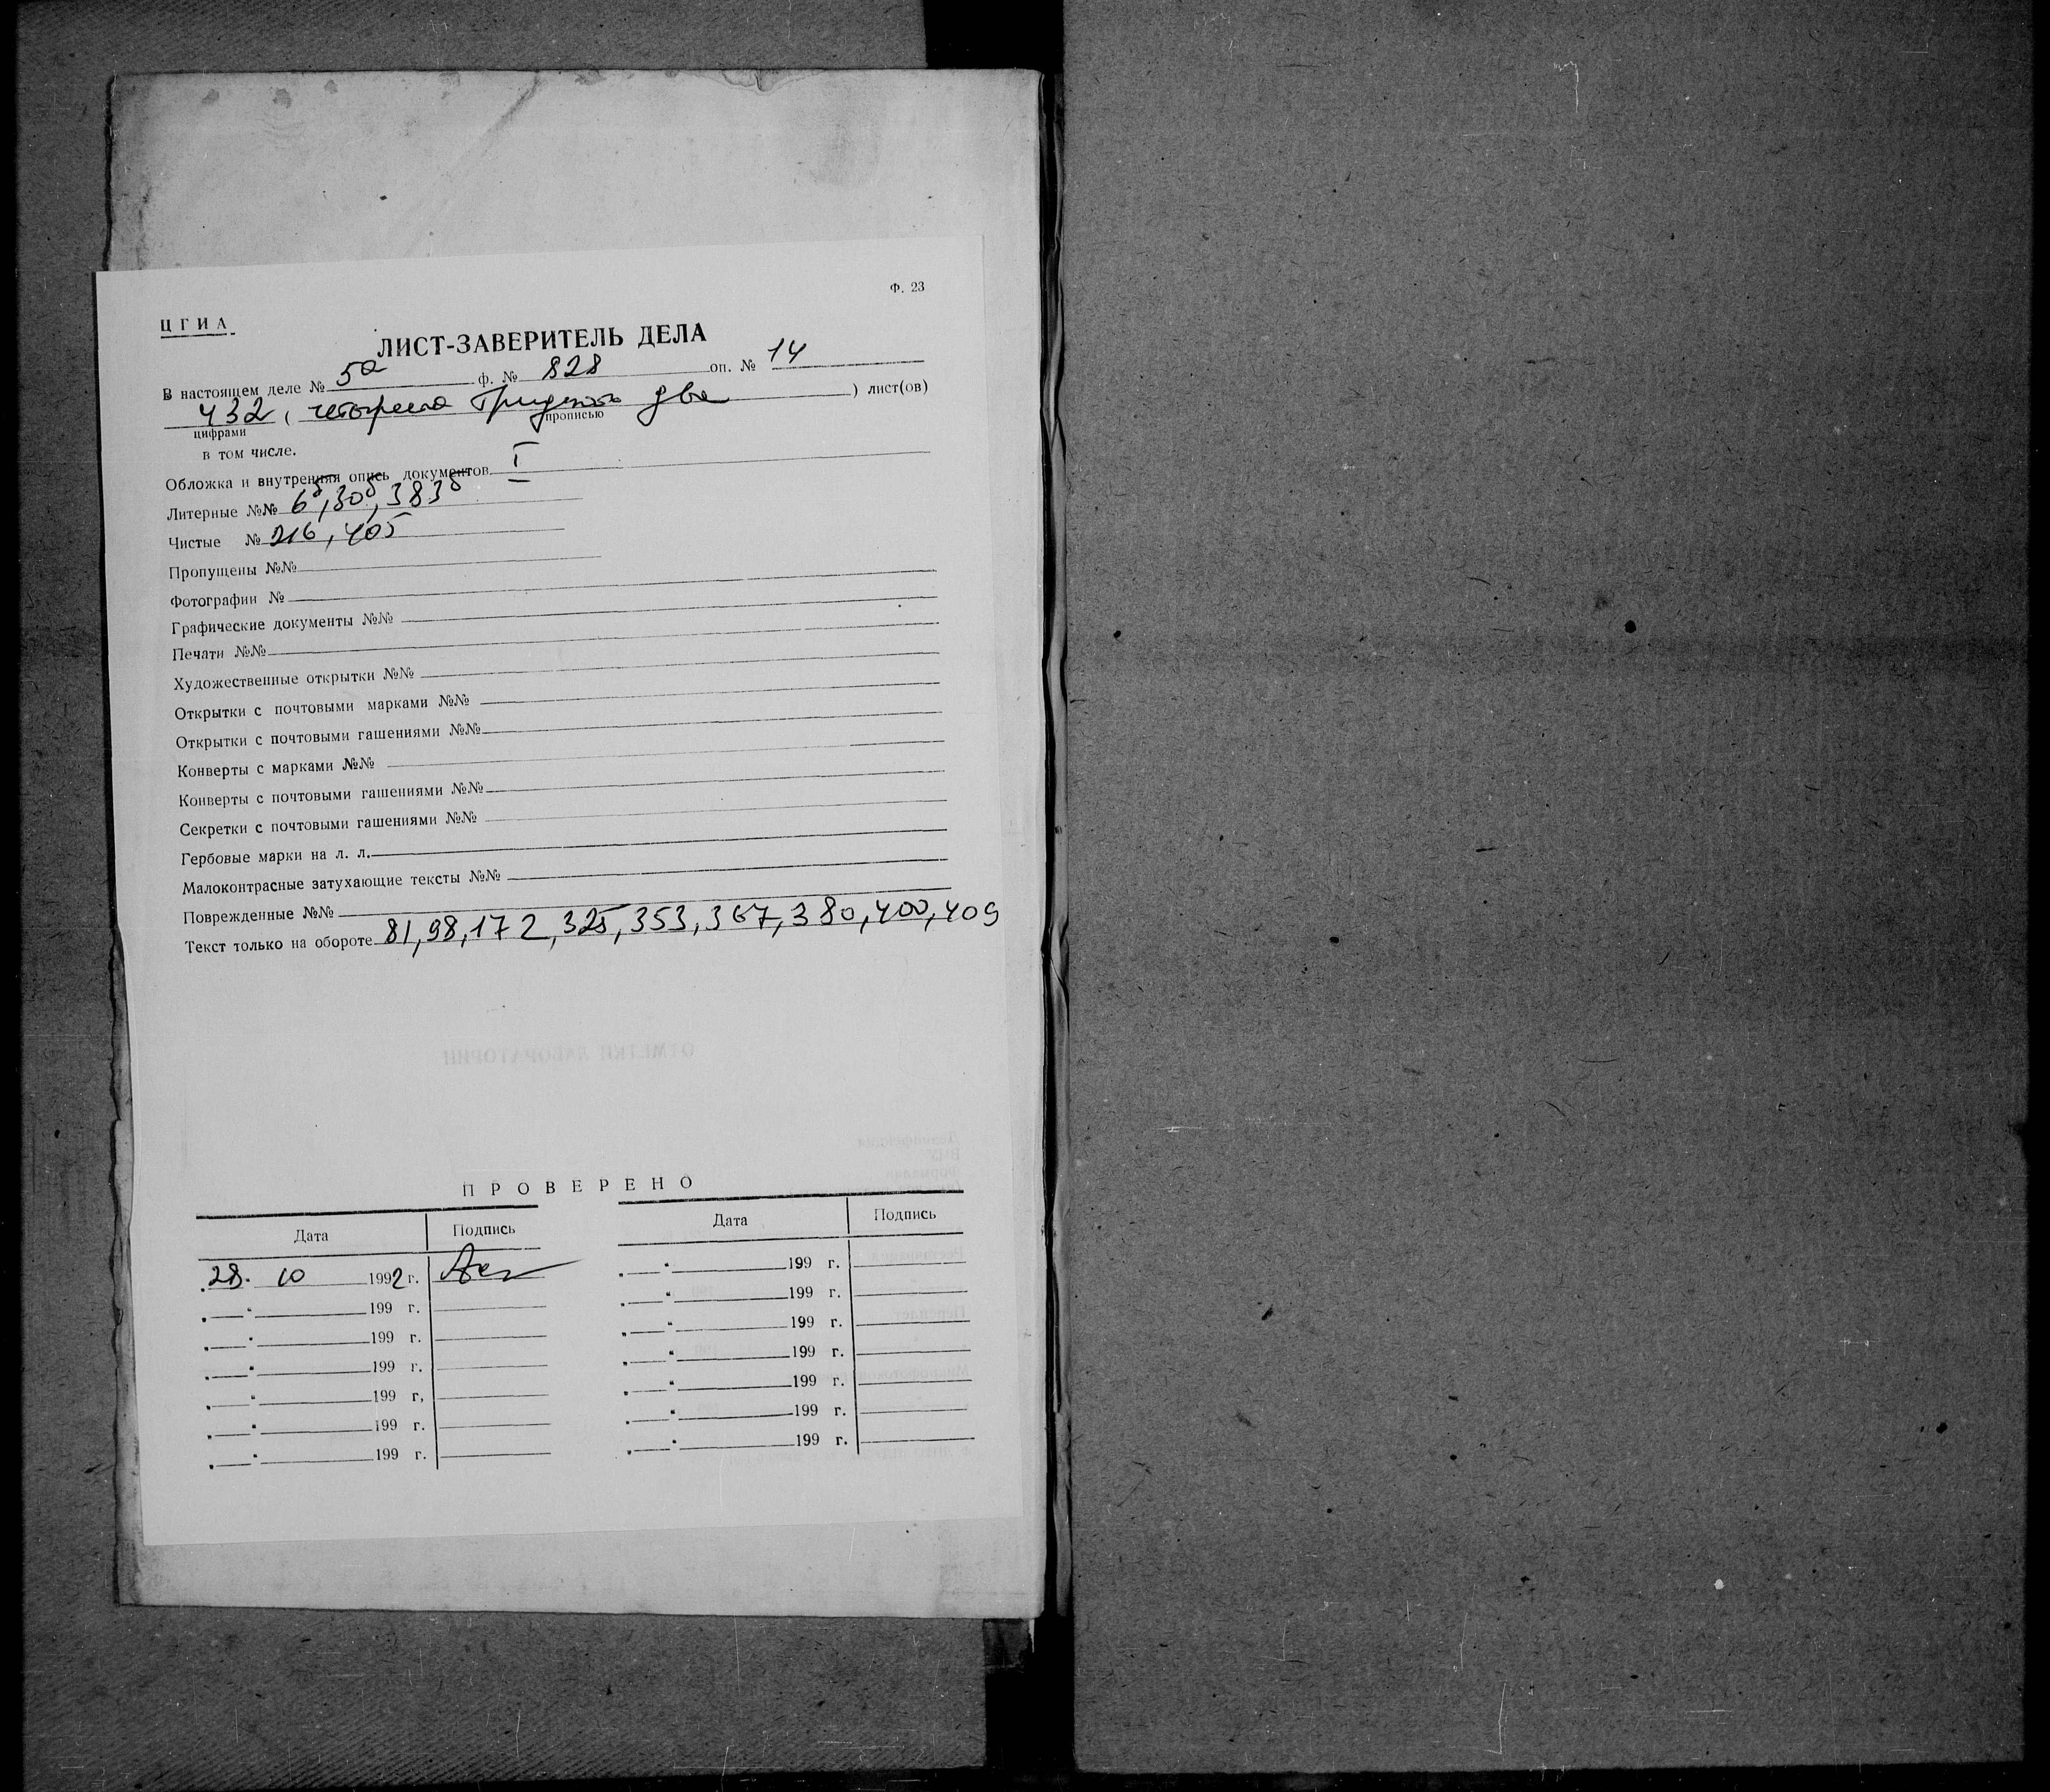 Ф. 23
ЦГИА
ЛИСТ-ЗАВЕРИТЕЛЬ ДЕЛА
В настоящем деле № 5а ф. № 828 оп. № 14
432, (четыреста тридцать два) лист(ов)
цифрами прописью
в том числе.
Обложка и внутренняя опись документов I
Литерные №№ 6б, 30б, 383б
Чистые № 216, 405
Пропущены №№
Фотографии №
Графические документы №№
Печати №№
Художественные открытки №№
Открытки с почтовыми марками №№
Открытки с почтовыми гашениями №№
Конверты с марками №№
Конверты с почтовыми гашениями №№
Секретки с почтовыми гашениями №№
Гербовые марки на л. л.
Малоконтрасные затухающие тексты №№
Поврежденные №№
Текст только на обороте 81, 98, 172, 325, 353, 367, 380, 400, 409
ОТМЕТКИ ЛАБОРАТОРИИ
ПРОВЕРЕНО
Дата Подпись Дата Подпись
28. 10 1992 г. 199 г.
199 г. 199 г.
199 г. 199 г.
199 г. 199 г.
199 г, 199 г.
199 г. 199 г.
199 г. 199 г.